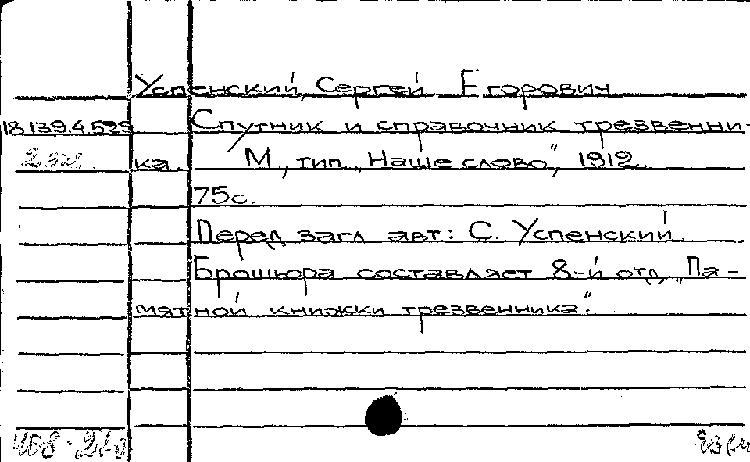 Успенский, Сергей Егорович
18.139.4.529 Спутник и справочник трезвенни-
2 экз. ка. М., тип. „Наше слово", 1912.
75с.
Перед загл. авт.: С. Успенский.
Брошюра составляет 8-й отд. „Па-
мятной книжки трезвенника".